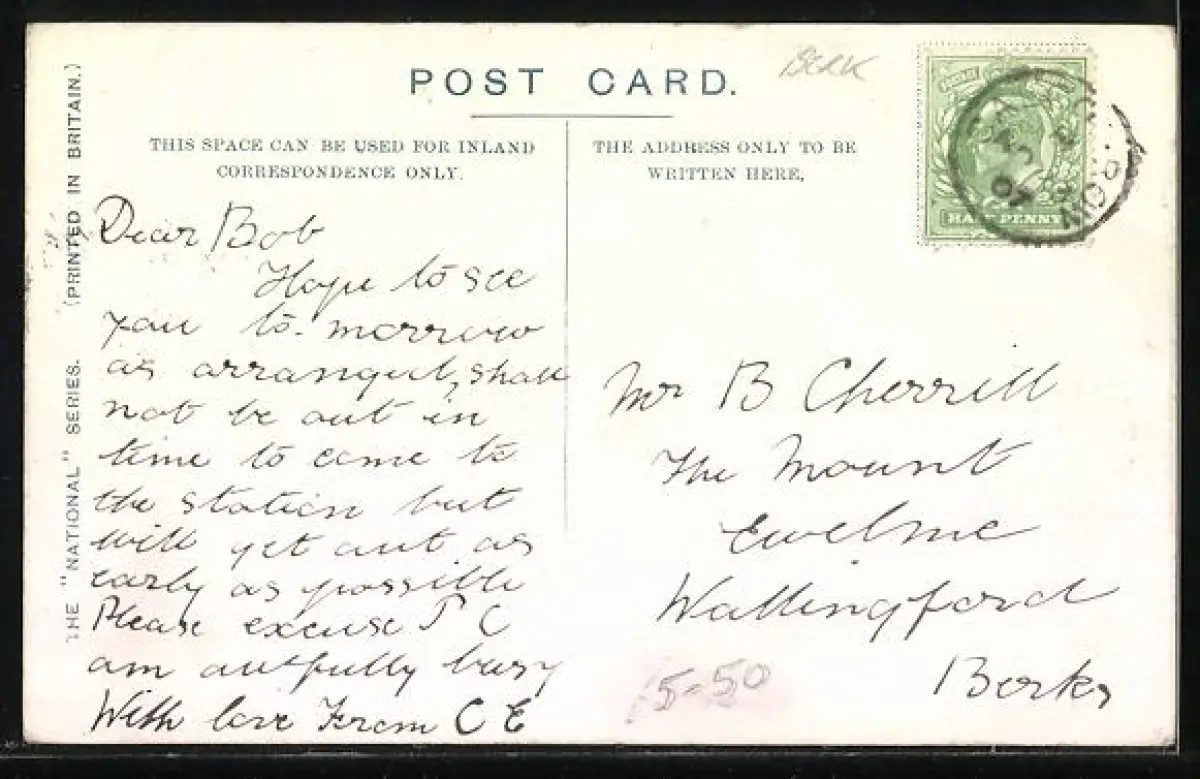 POST CARD.
BERK
THIS SPACE CAN BE USED FOR INLAND
CORRESPONDENCE ONLY.
THE ADDRESS ONLY TO BE
WRITTEN HERE,
HALF PENNY
07
THE "NATIONAL" SERIES. (PRINTED IN BRITAIN.)
Dear Bob
Hope to see
you to-morrow
as arranged, shall
not be out in
time to come to
the station but
will get out as
early as possible
Please excuse P C
am autfully busy
With love From C E
Mr B Cherrill
The Mount
Ewelme
Wallingford
Berks
5-50